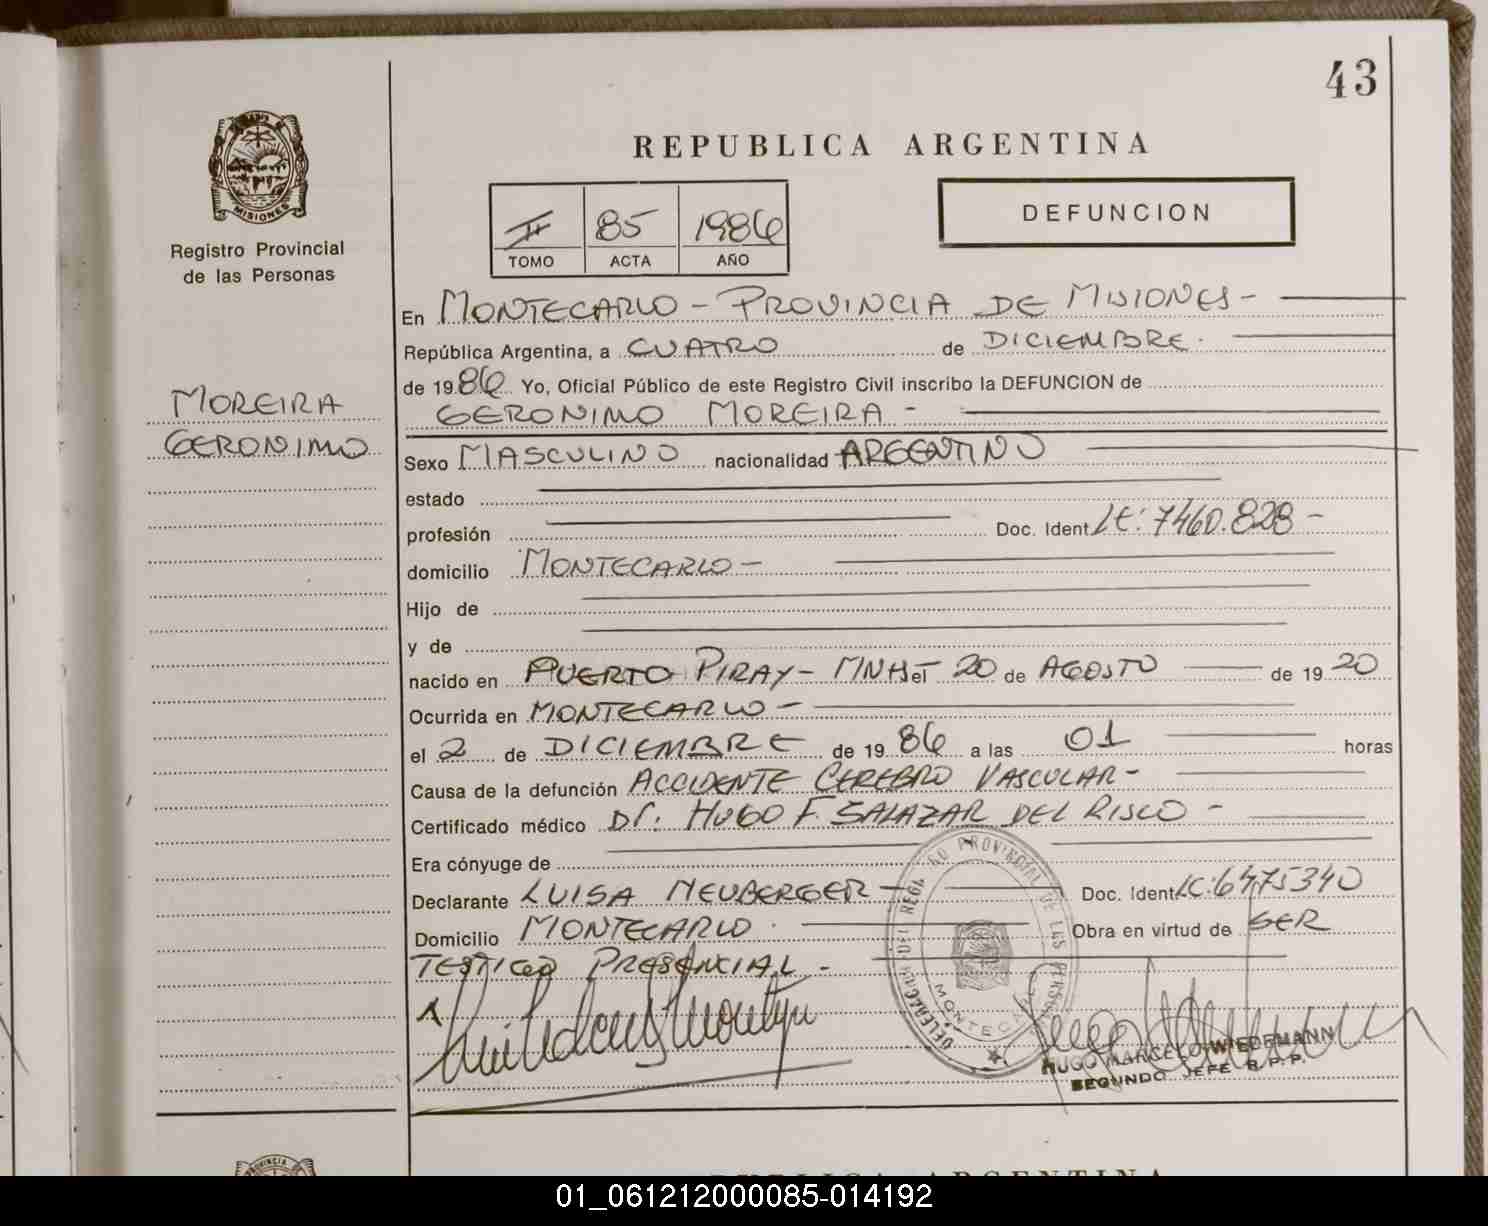 43
MISIONES
Registro Provincial
de las Personas
MOREIRA
GERONIMO
REPUBLICA ARGENTINA
II 85 1986
TOMO ACTA AÑO
DEFUNCION
En MONTECARLO - PROVINCIA DE MISIONES -
República Argentina, a CUATRO de DICIEMBRE.
de 1986 Yo, Oficial Público de este Registro Civil inscribo la DEFUNCION de
GERONIMO MOREIRA -
Sexo MASCULINO nacionalidad ARGENTINO
estado
profesión Doc. Ident. LE: 7460.828 -
domicilio MONTECARLO -
Hijo de
y de
nacido en PUERTO PIRAY - MNES el 20 de AGOSTO de 1920
Ocurrida en MONTECARLO -
el 2 de DICIEMBRE de 1986 a las 01 horas
Causa de la defunción ACCIDENTE CEREBRO VASCULAR -
Certificado médico Dr. HUGO F. SALAZAR DEL RISCO -
Era cónyuge de
Declarante LUISA NEUBERGER - Doc. Ident. LC: 6475340
Domicilio MONTECARLO. Obra en virtud de SER
TESTIGO PRESENCIAL -
DELEGACION DEL REGISTRO PROVINCIAL DE LAS PERSONAS
MONTECARLO
HUGO MARCELO WIEDEMANN
SEGUNDO JEFE R.P.P.
PROVINCIA
REPUBLICA ARGENTINA
01_061212000085-014192